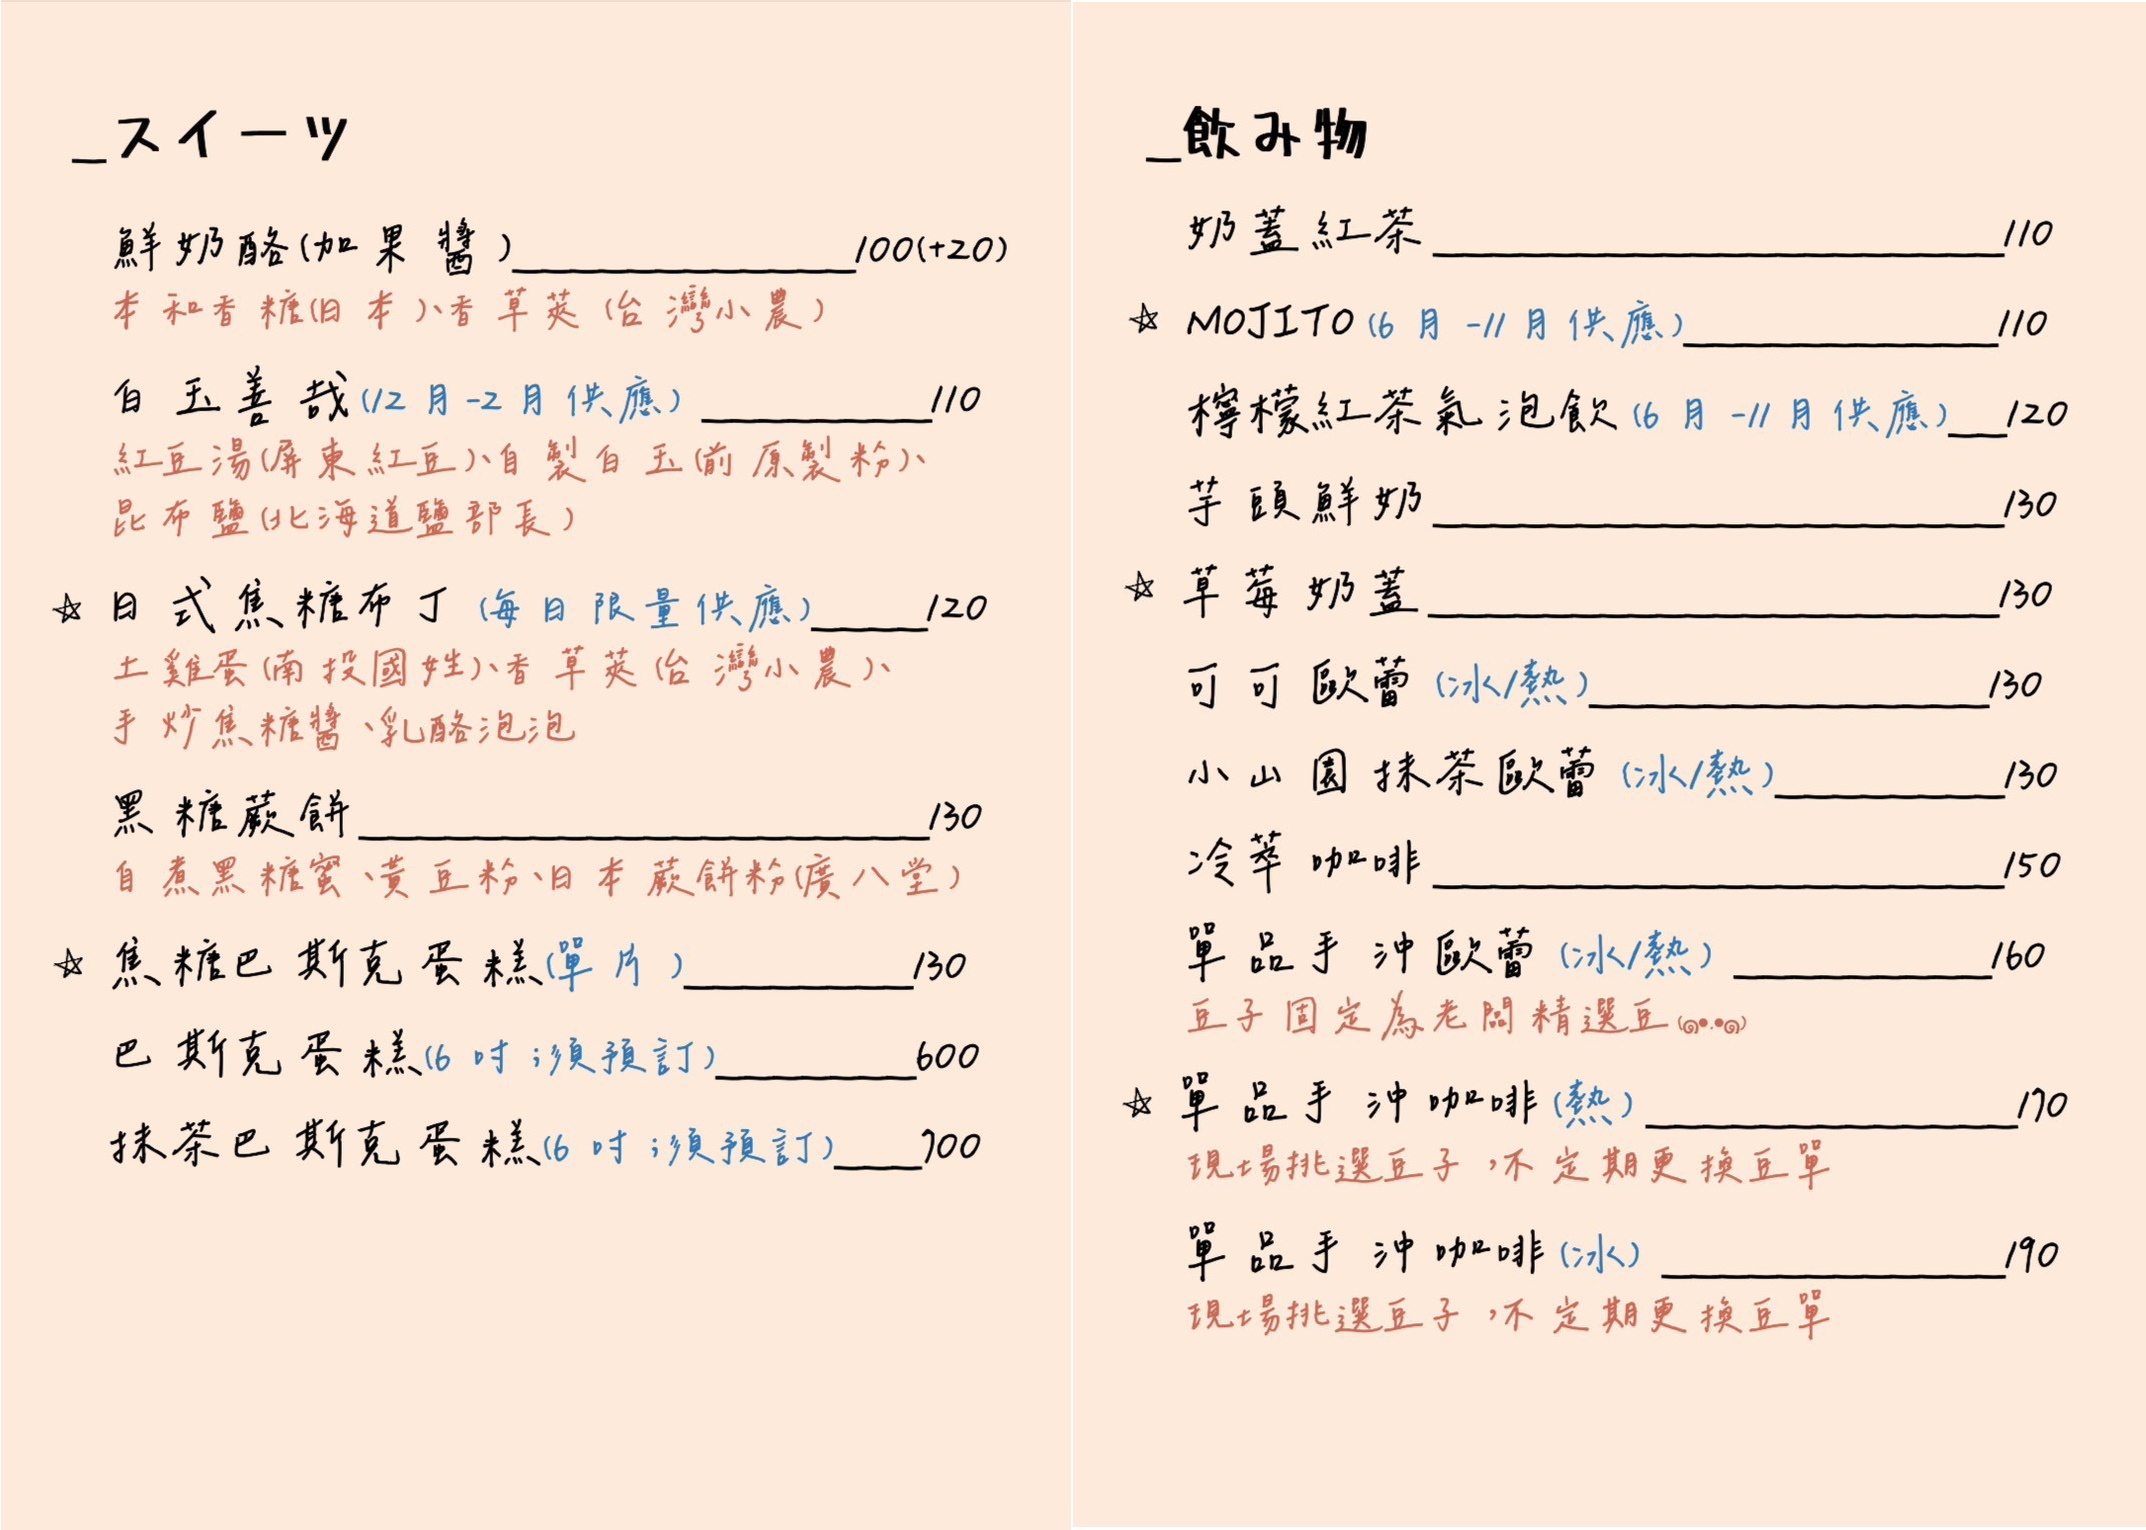 _スイーツ
鮮奶酪(加果醬)____100(+20)
本和香糖(日本)、香草莢(台灣小農)
白玉善哉(12月-2月供應)____110
紅豆湯(屏東紅豆)、自製白玉(前原製粉)、
昆布鹽(北海道鹽部長)
☆ 日式焦糖布丁(每日限量供應)____120
土雞蛋(南投國姓)、香草莢(台灣小農)、
手炒焦糖醬、乳酪泡泡
黑糖蕨餅____130
自煮黑糖蜜、黃豆粉、日本蕨餅粉(廣八堂)
☆ 焦糖巴斯克蛋糕(單片)____130
巴斯克蛋糕(6吋;須預訂)____600
抹茶巴斯克蛋糕(6吋;須預訂)____700
_飲み物
奶蓋紅茶____110
☆ MOJITO(6月-11月供應)____110
檸檬紅茶氣泡飲(6月-11月供應)____120
芋頭鮮奶____130
☆ 草莓奶蓋____130
可可歐蕾(冰/熱)____130
小山園抹茶歐蕾(冰/熱)____130
冷萃咖啡____150
單品手沖歐蕾(冰/熱)____160
豆子固定為老闆精選豆(๑•.•๑)
☆ 單品手沖咖啡(熱)____170
現場挑選豆子,不定期更換豆單
單品手沖咖啡(冰)____190
現場挑選豆子,不定期更換豆單